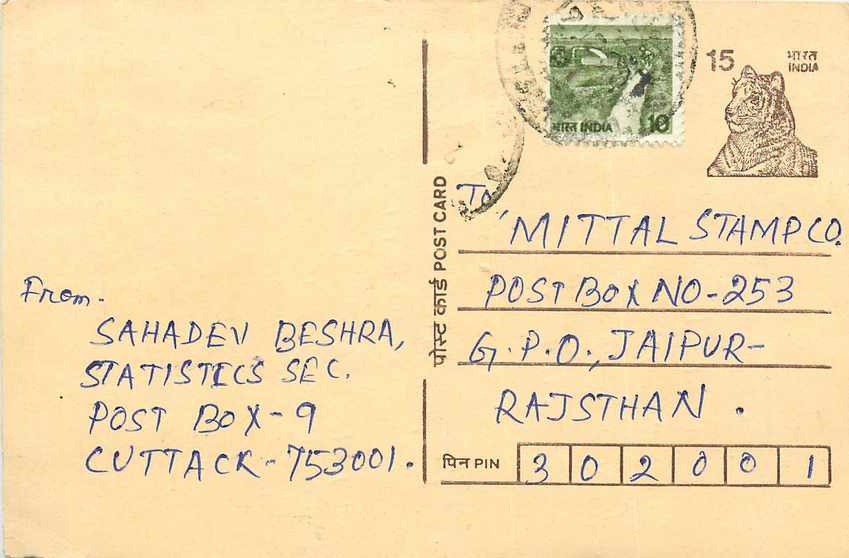 15 भारत
INDIA
भारत INDIA 10
पोस्ट कार्ड POST CARD
To
MITTAL STAMP CO.
POST BOX NO-253
G.P.O., JAIPUR-
RAJSTHAN.
पिन PIN 302001
From-
SAHADEV BESHRA,
STATISTICS SEC.
POST BOX-9
CUTTACK-753001.